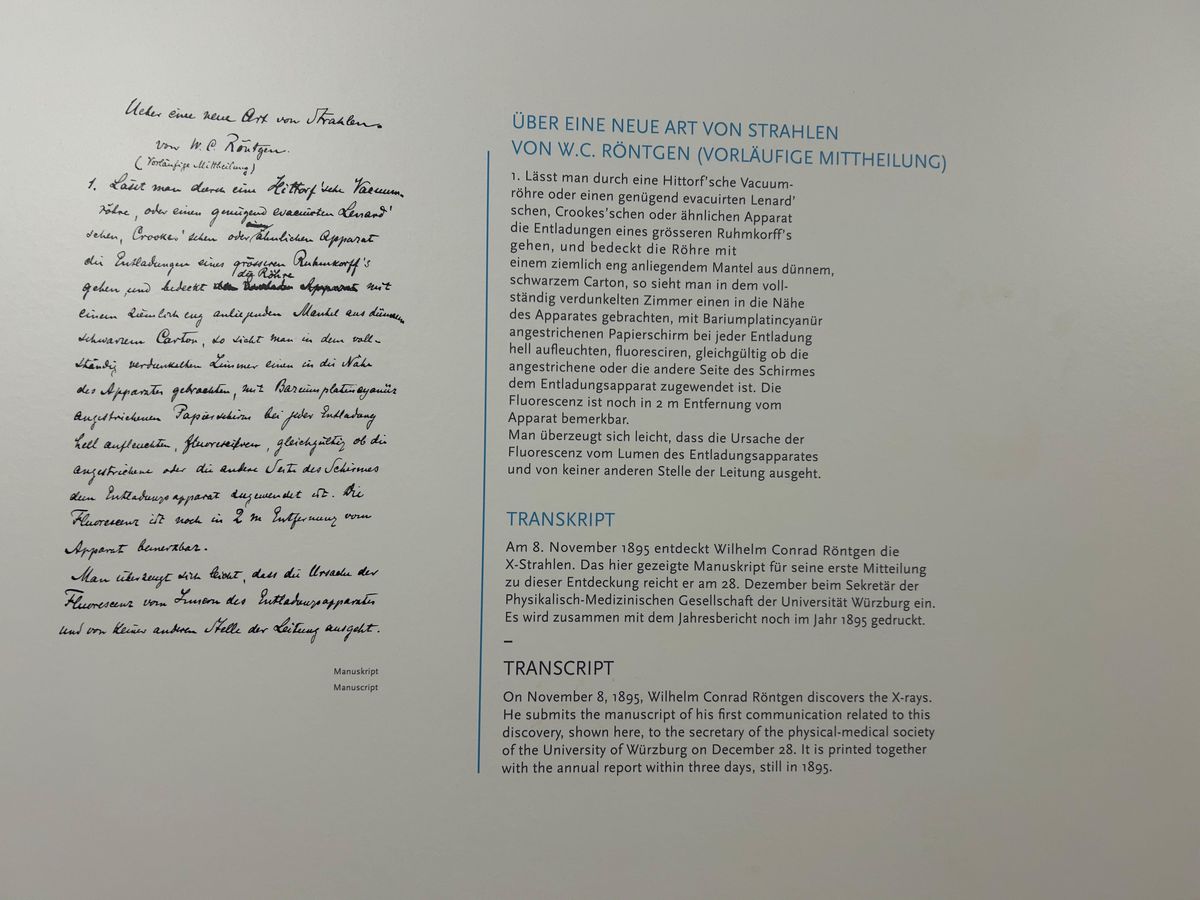 Ueber eine neue Art von Strahlen.
von W. C. Röntgen.
(Vorläufige Mittheilung)
1. Lässt man durch eine Hittorf'sche Vacuum-
röhre, oder einen genügend evacuirten Lenard'
schen, Crookes'schen oder ähnlichen Apparat
die Entladungen eines grösseren Ruhmkorff's
die Röhre
gehen, und bedeckt Apparat mit
einem ziemlich eng anliegenden Mantel aus dünnem,
schwarzem Carton, so sieht man in dem voll-
ständig verdunkelten Zimmer einen in die Nähe
des Apparates gebrachten, mit Bariumplatincyanür
angestrichenen Papierschirm bei jeder Entladung
hell aufleuchten, fluoresciren, gleichgültig ob die
angestrichene oder die andere Seite des Schirmes
dem Entladungsapparat zugewendet ist. Die
Fluorescenz ist noch in 2 m Entfernung vom
Apparat bemerkbar.
Man überzeugt sich leicht, dass die Ursache der
Fluorescenz vom Innern des Entladungsapparates
und von keiner anderen Stelle der Leitung ausgeht.
Manuskript
Manuscript
ÜBER EINE NEUE ART VON STRAHLEN
VON W.C. RÖNTGEN (VORLÄUFIGE MITTHEILUNG)
1. Lässt man durch eine Hittorf'sche Vacuum-
röhre oder einen genügend evacuirten Lenard'
schen, Crookes'schen oder ähnlichen Apparat
die Entladungen eines grösseren Ruhmkorff's
gehen, und bedeckt die Röhre mit
einem ziemlich eng anliegendem Mantel aus dünnem,
schwarzem Carton, so sieht man in dem voll-
ständig verdunkelten Zimmer einen in die Nähe
des Apparates gebrachten, mit Bariumplatincyanür
angestrichenen Papierschirm bei jeder Entladung
hell aufleuchten, fluoresciren, gleichgültig ob die
angestrichene oder die andere Seite des Schirmes
dem Entladungsapparat zugewendet ist. Die
Fluorescenz ist noch in 2 m Entfernung vom
Apparat bemerkbar.
Man überzeugt sich leicht, dass die Ursache der
Fluorescenz vom Lumen des Entladungsapparates
und von keiner anderen Stelle der Leitung ausgeht.
TRANSKRIPT
Am 8. November 1895 entdeckt Wilhelm Conrad Röntgen die
X-Strahlen. Das hier gezeigte Manuskript für seine erste Mitteilung
zu dieser Entdeckung reicht er am 28. Dezember beim Sekretär der
Physikalisch-Medizinischen Gesellschaft der Universität Würzburg ein.
Es wird zusammen mit dem Jahresbericht noch im Jahr 1895 gedruckt.
–
TRANSCRIPT
On November 8, 1895, Wilhelm Conrad Röntgen discovers the X-rays.
He submits the manuscript of his first communication related to this
discovery, shown here, to the secretary of the physical-medical society
of the University of Würzburg on December 28. It is printed together
with the annual report within three days, still in 1895.